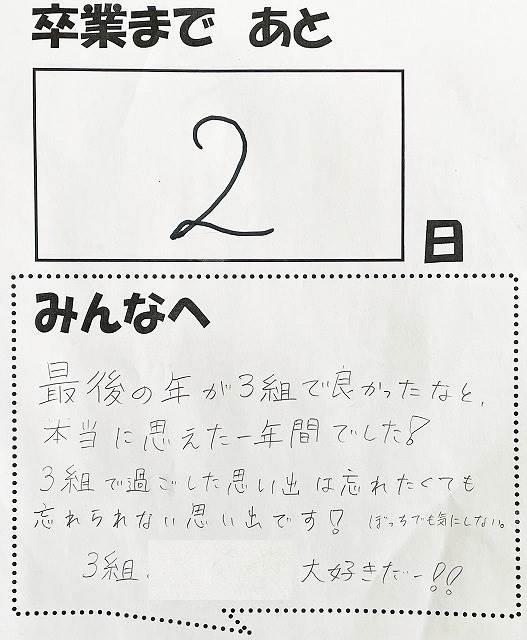 卒業まで あと
2
日
みんなへ
最後の年が3組で良かったなと、
本当に思えた一年間でした!
3組で過ごした思い出は忘れたくても
忘れられない思い出です! ぼっちでも気にしない。
3組、 大好きだー!!